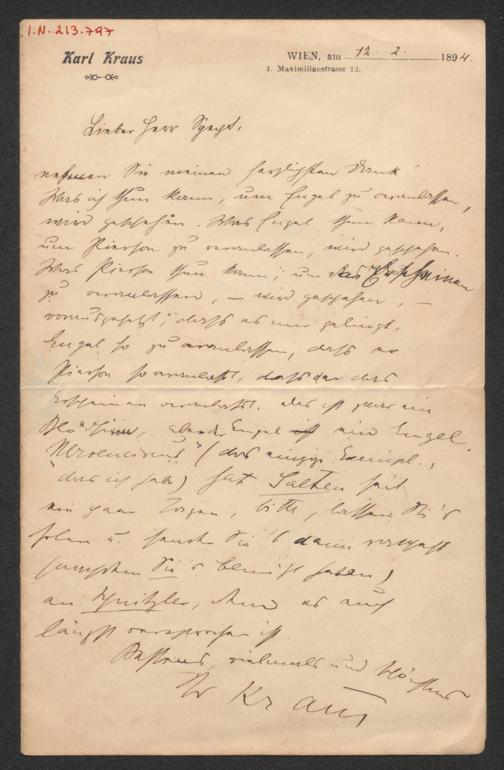 I.N. 213.797
Karl Kraus
WIEN, am 12. 2. 1894.
I. Maximilianstrasse 13.
Lieber Herr
nehmen Sie meinen herzlichsten Dank!
Was ich thun kann, um Engel zu veranlassen,
wird geschehen. Was Engel thun kann,
um Pierson zu veranlassen, wird geschehen.
Was Pierson thun kann, um das Erscheinen
zu veranlassen, – wird geschehen, –
vorausgesetzt, dass es mir gelingt,
Engel so zu veranlassen, dass er
Pierson so veranlasst, dass der das
Erscheinen veranlasst. Das ist zwar ein
aber der Engel ist ein Engel.
(das einzige Exempl.,
das ich habe) hat Salten seit
ein paar Tagen, bitte, lassen Sie's
holen u. senden Sie's dann
(nachdem Sie's benützt haben)
an Schnitzler, dem es auch
längst versprochen ist.
Bestens, vielmals und schönstens
Ihr Kraus